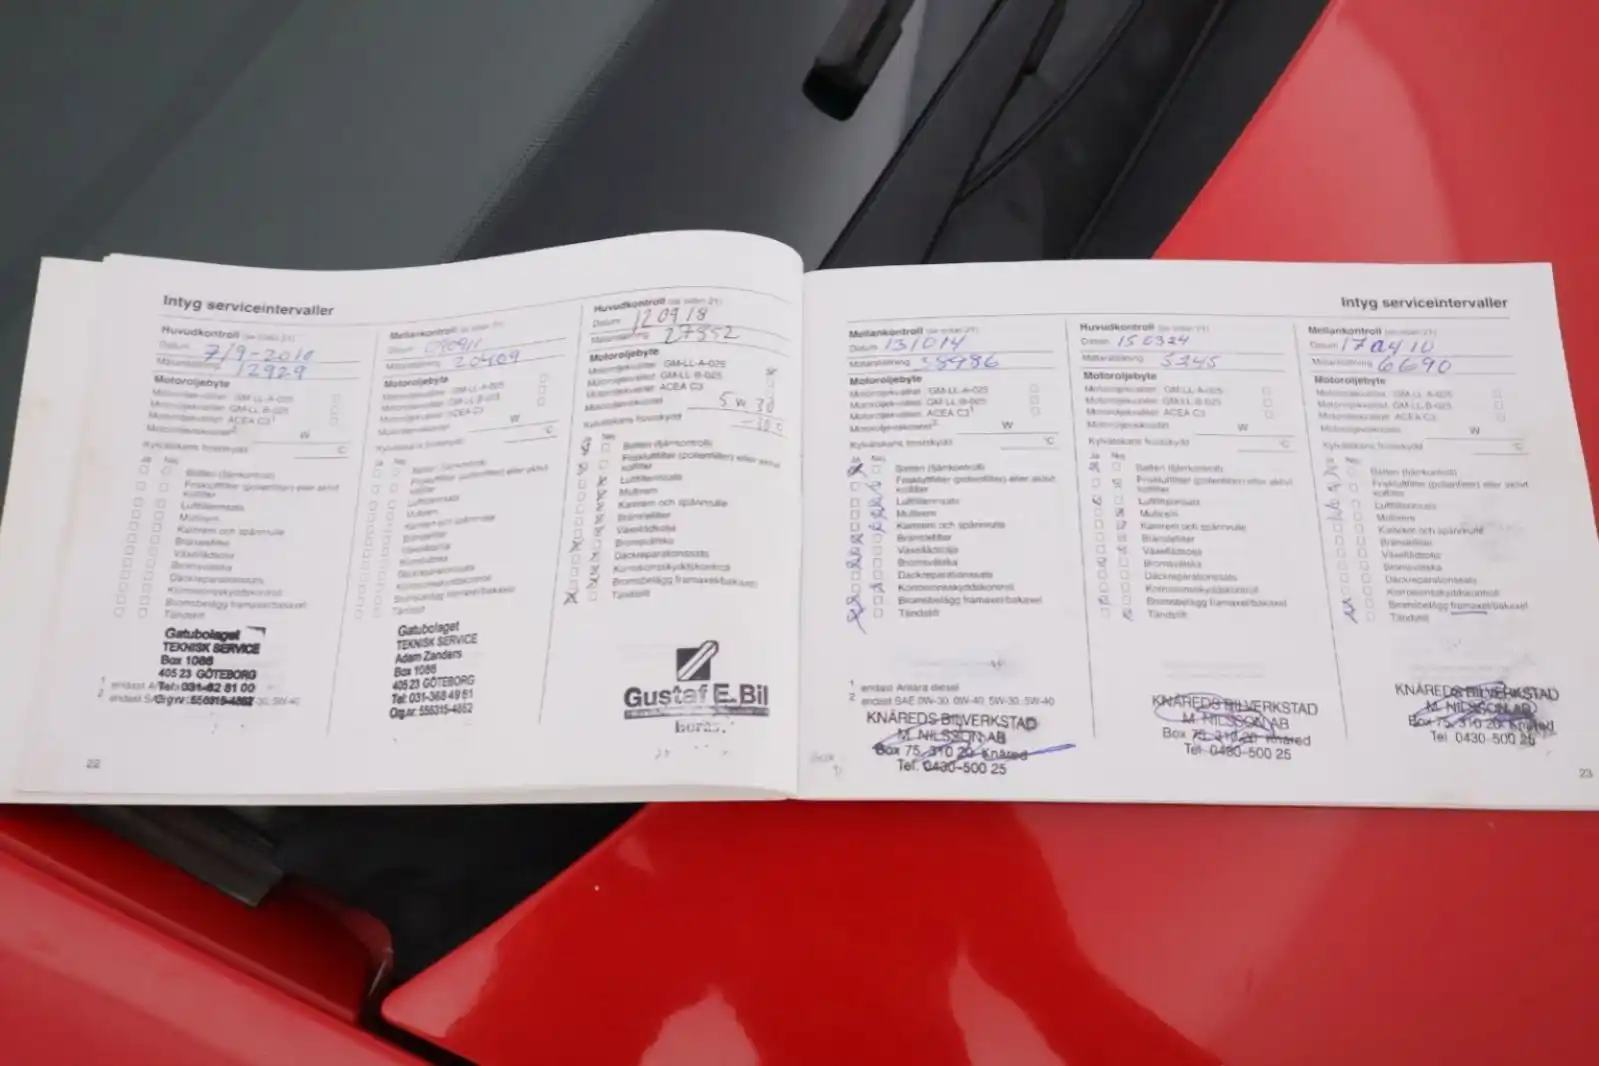 Intyg serviceintervaller
Huvudkontroll (se sidan 21)
Datum 7/9-2010
Mätarställning 12929
Motoroljebyte
Motoroljekvalitet GM-LL-A-025
Motoroljekvalitet GM-LL-B-025
Motoroljekvalitet ACEA C3¹
Motoroljeviskositet² W
Kylvätskans frysskydd °C
Ja Nej
Batteri (fjärrkontroll)
Friskluftfilter (pollenfilter) eller aktivt
kolfilter
Luftfilterinsats
Multirem
Kamrem och spännrulle
Bränslefilter
Växellådsolja
Bromsvätska
Däckreparationssats
Korrosionsskyddskontroll
Bromsbelägg framaxel/bakaxel
Tändstift
Gatubolaget
TEKNISK SERVICE
Box 1086
405 23 GÖTEBORG
Tel: 031-62 81 00
Org.nr: 556315-4862
22
Mellankontroll (se sidan 21)
Datum
Mätarställning 20409
Motoroljebyte
Motoroljekvalitet GM-LL-A-025
Motoroljekvalitet GM-LL-B-025
Motoroljekvalitet ACEA C3
Motoroljeviskositet W
Kylvätskans frysskydd °C
Ja Nej
Batteri (fjärrkontroll)
Friskluftfilter (pollenfilter) eller aktivt
kolfilter
Luftfilterinsats
Multirem
Kamrem och spännrulle
Bränslefilter
Växellådsolja
Bromsvätska
Däckreparationssats
Korrosionsskyddskontroll
Bromsbelägg framaxel/bakaxel
Tändstift
Gatubolaget
TEKNISK SERVICE
Adam Zanders
Box 1086
405 23 GÖTEBORG
Tel: 031-368 49 61
Org.nr: 556315-4862
Huvudkontroll (se sidan 21)
Datum 120918
Mätarställning 27352
Motoroljebyte
Motoroljekvalitet GM-LL-A-025
Motoroljekvalitet GM-LL-B-025
Motoroljekvalitet ACEA C3
Motoroljeviskositet 5W30
Kylvätskans frysskydd -30°C
Ja Nej
Batteri (fjärrkontroll)
Friskluftfilter (pollenfilter) eller aktivt
kolfilter
Luftfilterinsats
Multirem
Kamrem och spännrulle
Bränslefilter
Växellådsolja
Bromsvätska
Däckreparationssats
Korrosionsskyddskontroll
Bromsbelägg framaxel/bakaxel
Tändstift
Gustaf E. Bil
Intyg serviceintervaller
Mellankontroll (se sidan 21)
Datum 131014
Mätarställning 38986
Motoroljebyte
Motoroljekvalitet GM-LL-A-025
Motoroljekvalitet GM-LL-B-025
Motoroljekvalitet ACEA C3¹
Motoroljeviskositet² W
Kylvätskans frysskydd °C
Ja Nej
Batteri (fjärrkontroll)
Friskluftfilter (pollenfilter) eller aktivt
kolfilter
Luftfilterinsats
Multirem
Kamrem och spännrulle
Bränslefilter
Växellådsolja
Bromsvätska
Däckreparationssats
Korrosionsskyddskontroll
Bromsbelägg framaxel/bakaxel
Tändstift
1 endast Ankara diesel
2 endast SAE 0W-30, 0W-40, 5W-30, 5W-40
KNÄREDS BILVERKSTAD
M. NILSSON AB
Box 75, 310 20 Knäred
Tel. 0430-500 25
Huvudkontroll (se sidan 21)
Datum 150324
Mätarställning 5245
Motoroljebyte
Motoroljekvalitet GM-LL-A-025
Motoroljekvalitet GM-LL-B-025
Motoroljekvalitet ACEA C3
Motoroljeviskositet W
Kylvätskans frysskydd °C
Ja Nej
Batteri (fjärrkontroll)
Friskluftfilter (pollenfilter) eller aktivt
kolfilter
Luftfilterinsats
Multirem
Kamrem och spännrulle
Bränslefilter
Växellådsolja
Bromsvätska
Däckreparationssats
Korrosionsskyddskontroll
Bromsbelägg framaxel/bakaxel
Tändstift
KNÄREDS BILVERKSTAD
M. NILSSON AB
Box 75, 310 20 Knäred
Tel. 0430-500 25
Mellankontroll (se sidan 21)
Datum 170410
Mätarställning 6690
Motoroljebyte
Motoroljekvalitet GM-LL-A-025
Motoroljekvalitet GM-LL-B-025
Motoroljekvalitet ACEA C3
Motoroljeviskositet W
Kylvätskans frysskydd °C
Ja Nej
Batteri (fjärrkontroll)
Friskluftfilter (pollenfilter) eller aktivt
kolfilter
Luftfilterinsats
Multirem
Kamrem och spännrulle
Bränslefilter
Växellådsolja
Bromsvätska
Däckreparationssats
Korrosionsskyddskontroll
Bromsbelägg framaxel/bakaxel
Tändstift
KNÄREDS BILVERKSTAD
M. NILSSON AB
Box 75, 310 20 Knäred
Tel. 0430-500 25
23